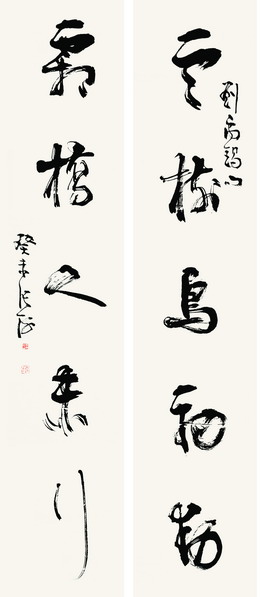 寒樹鳥初動
劉禹錫句
霜橋人未行
癸未